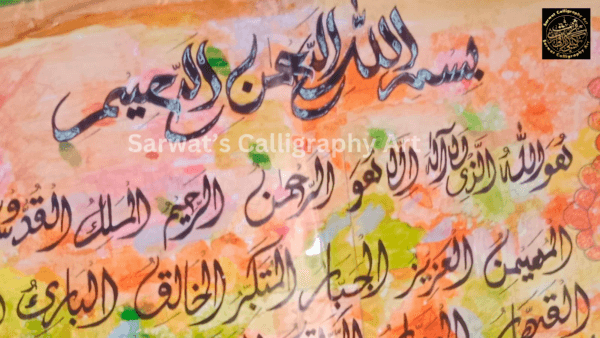 بسم الله الرحمن الرحیم
Sarwat's Calligraphy Art
هو الله الذی لا اله الا هو الرحمن الرحیم الملك القدوس
المهیمن العزیز الجبار المتکبر الخالق الباریُ
القهار
Sarwat Calligraphy Art